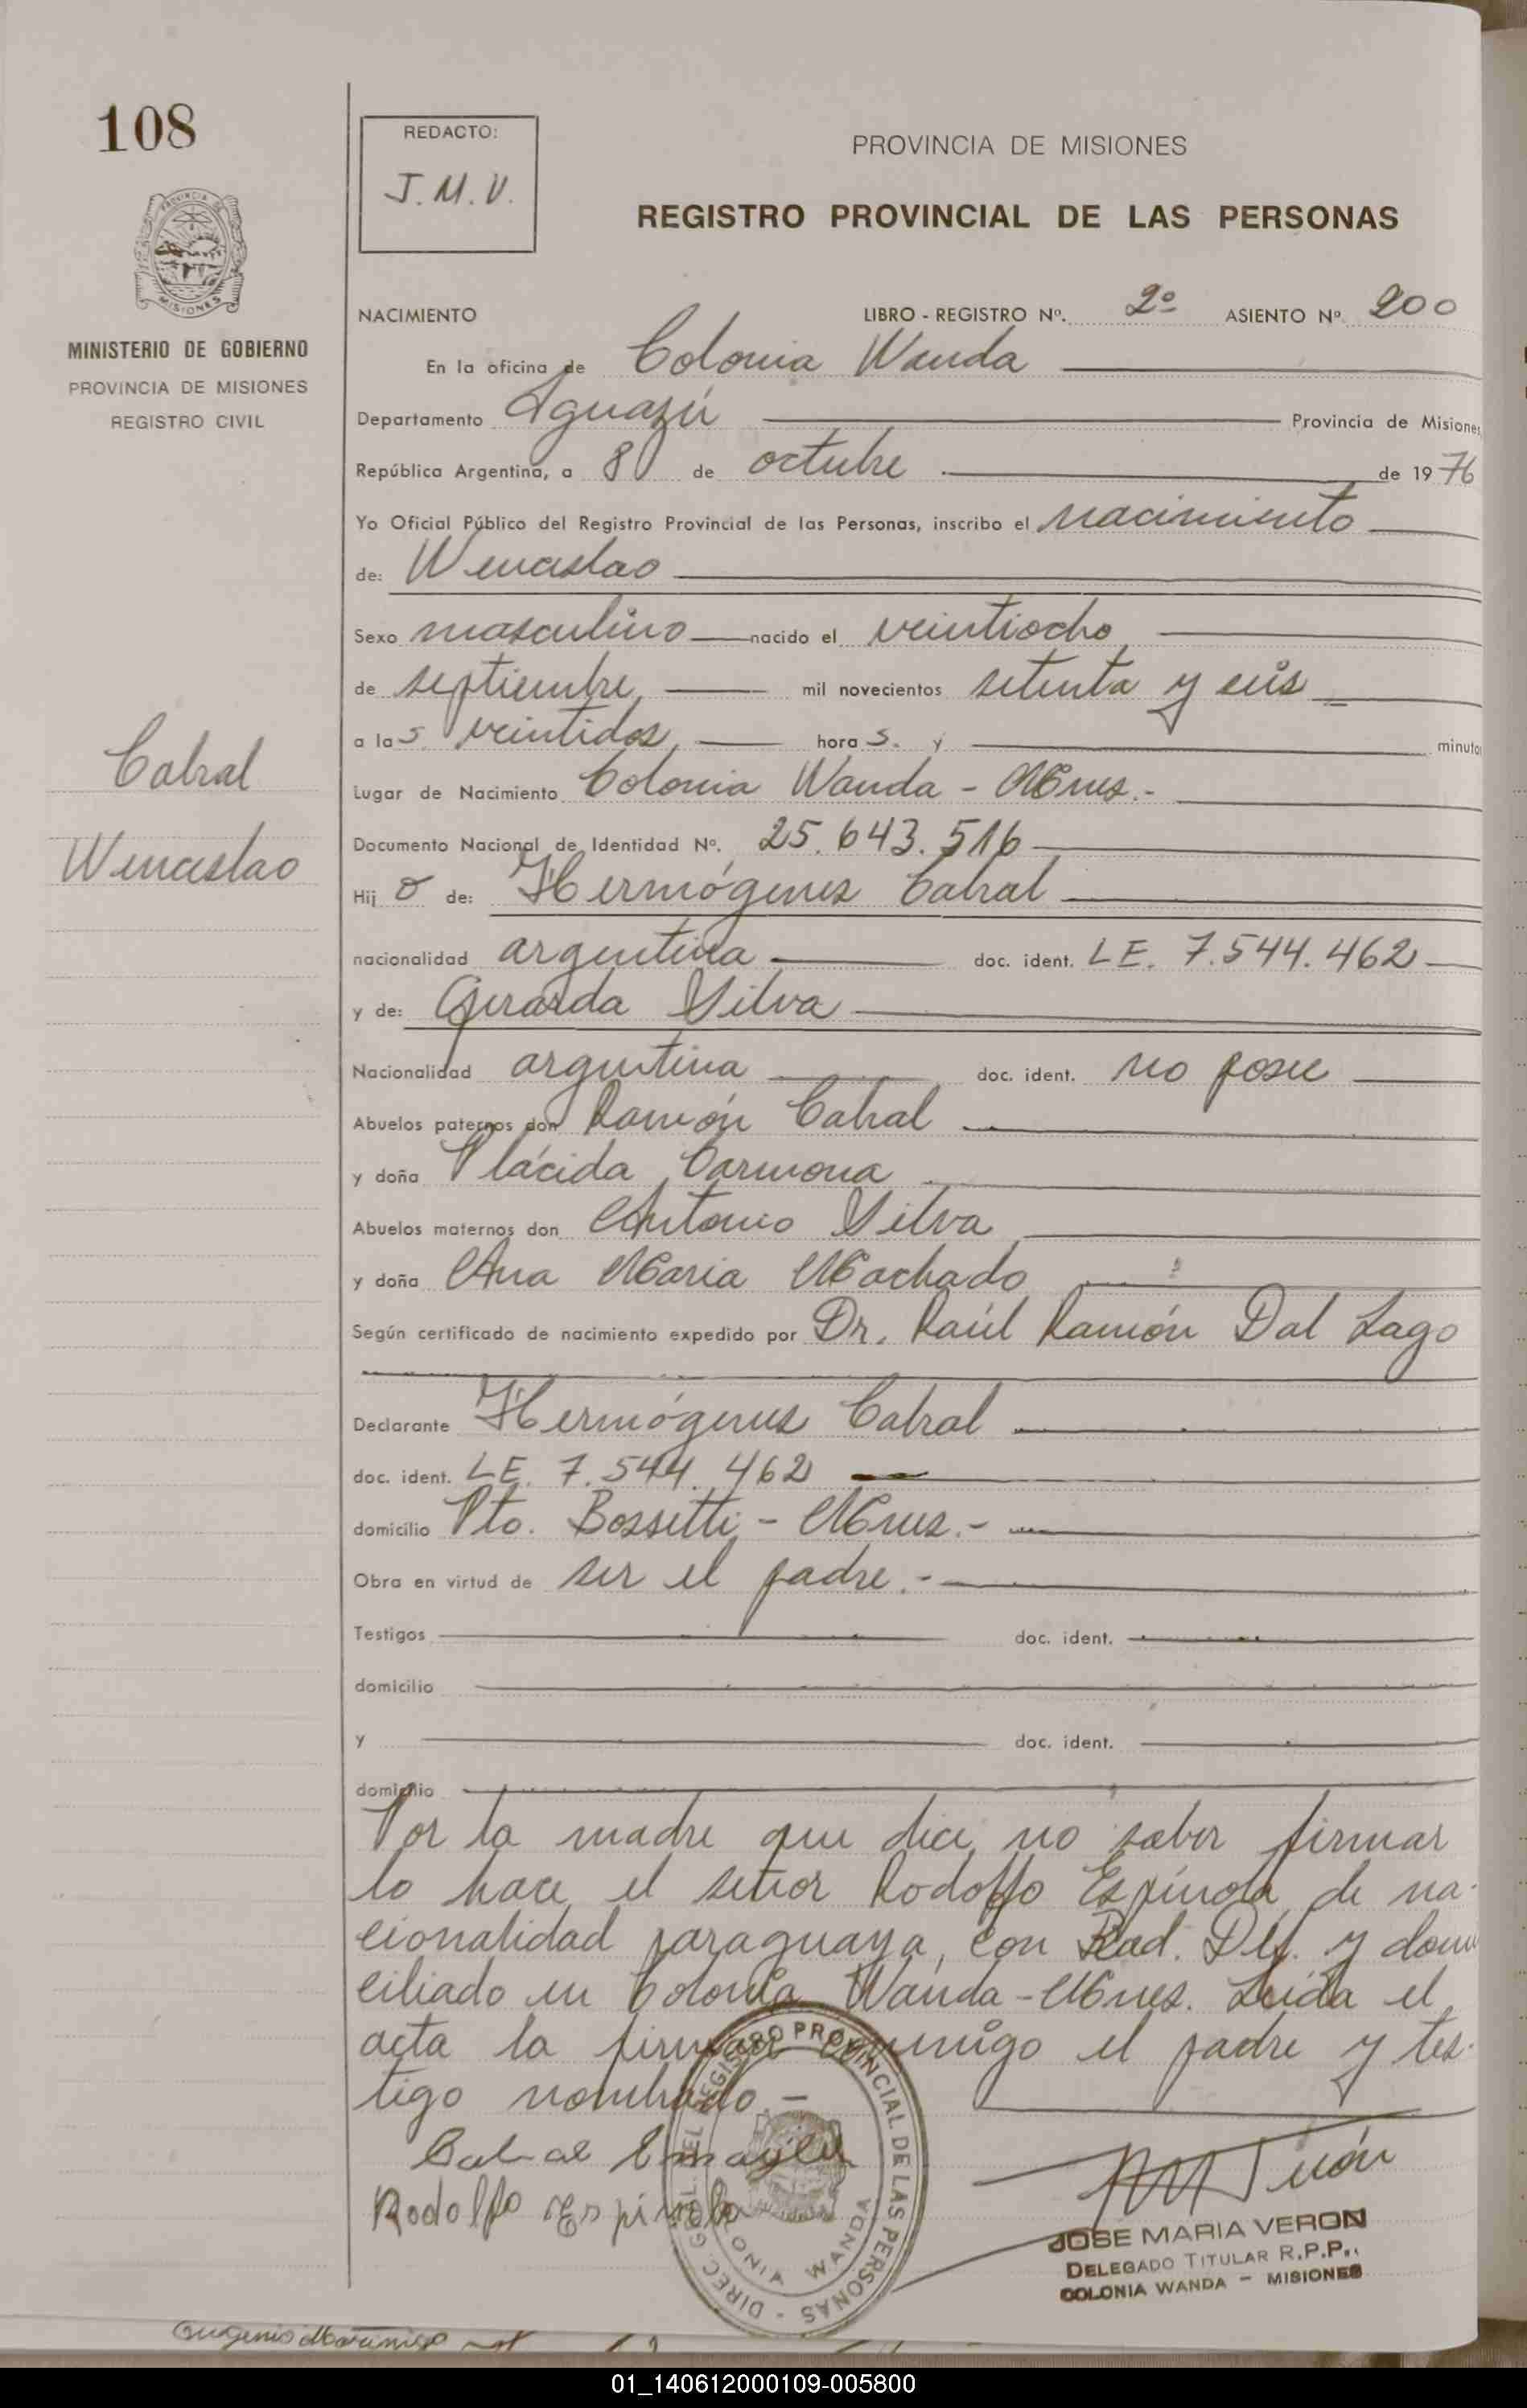 108
REDACTO:
J. M. V.
PROVINCIA DE MISIONES
REGISTRO PROVINCIAL DE LAS PERSONAS
MISIONES
MINISTERIO DE GOBIERNO
PROVINCIA DE MISIONES
REGISTRO CIVIL
NACIMIENTO LIBRO - REGISTRO Nº. 2º ASIENTO Nº. 200
En la oficina de Colonia Wanda
Departamento Iguazú Provincia de Misiones
República Argentina, a 8 de octubre de 1976
Yo Oficial Público del Registro Provincial de las Personas, inscribo el nacimiento
de: Wenceslao
Sexo masculino nacido el veintiocho
de septiembre mil novecientos setenta y seis
a las veintidos horas. y minutos
Cabral
Wenceslao
Lugar de Nacimiento Colonia Wanda - Mnes.-
Documento Nacional de Identidad Nº. 25.643.516
Hijo de: Hermógenes Cabral
nacionalidad argentina doc. ident. LE. 7.544.462
y de: Gerarda Silva
Nacionalidad argentina doc. ident. no posee
Abuelos paternos don Ramón Cabral
y doña Plácida Carmona
Abuelos maternos don Antonio Silva
y doña Ana Maria Machado
Según certificado de nacimiento expedido por Dr. Raúl Ramón Dal Lago
Declarante Hermógenes Cabral
doc. ident. LE. 7.544.462
domicilio Pto. Bossetti - Mnes.-
Obra en virtud de ser el padre.-
Testigos doc. ident.
domicilio
y doc. ident.
domicilio
Por la madre que dice no saber firmar
lo hace el señor Rodolfo Espínola de na-
cionalidad paraguaya, con Rad. Def. y domi
ciliado en Colonia Wanda - Mnes. Leída el
acta la firman conmigo el padre y tes-
tigo nombrado -
Cabral
Rodolfo Espinola
DIREC. GRAL. DEL REGISTRO PROVINCIAL DE LAS PERSONAS -
COLONIA WANDA
JOSE MARIA VERON
DELEGADO TITULAR R.P.P.,
COLONIA WANDA - MISIONES
01_140612000109-005800